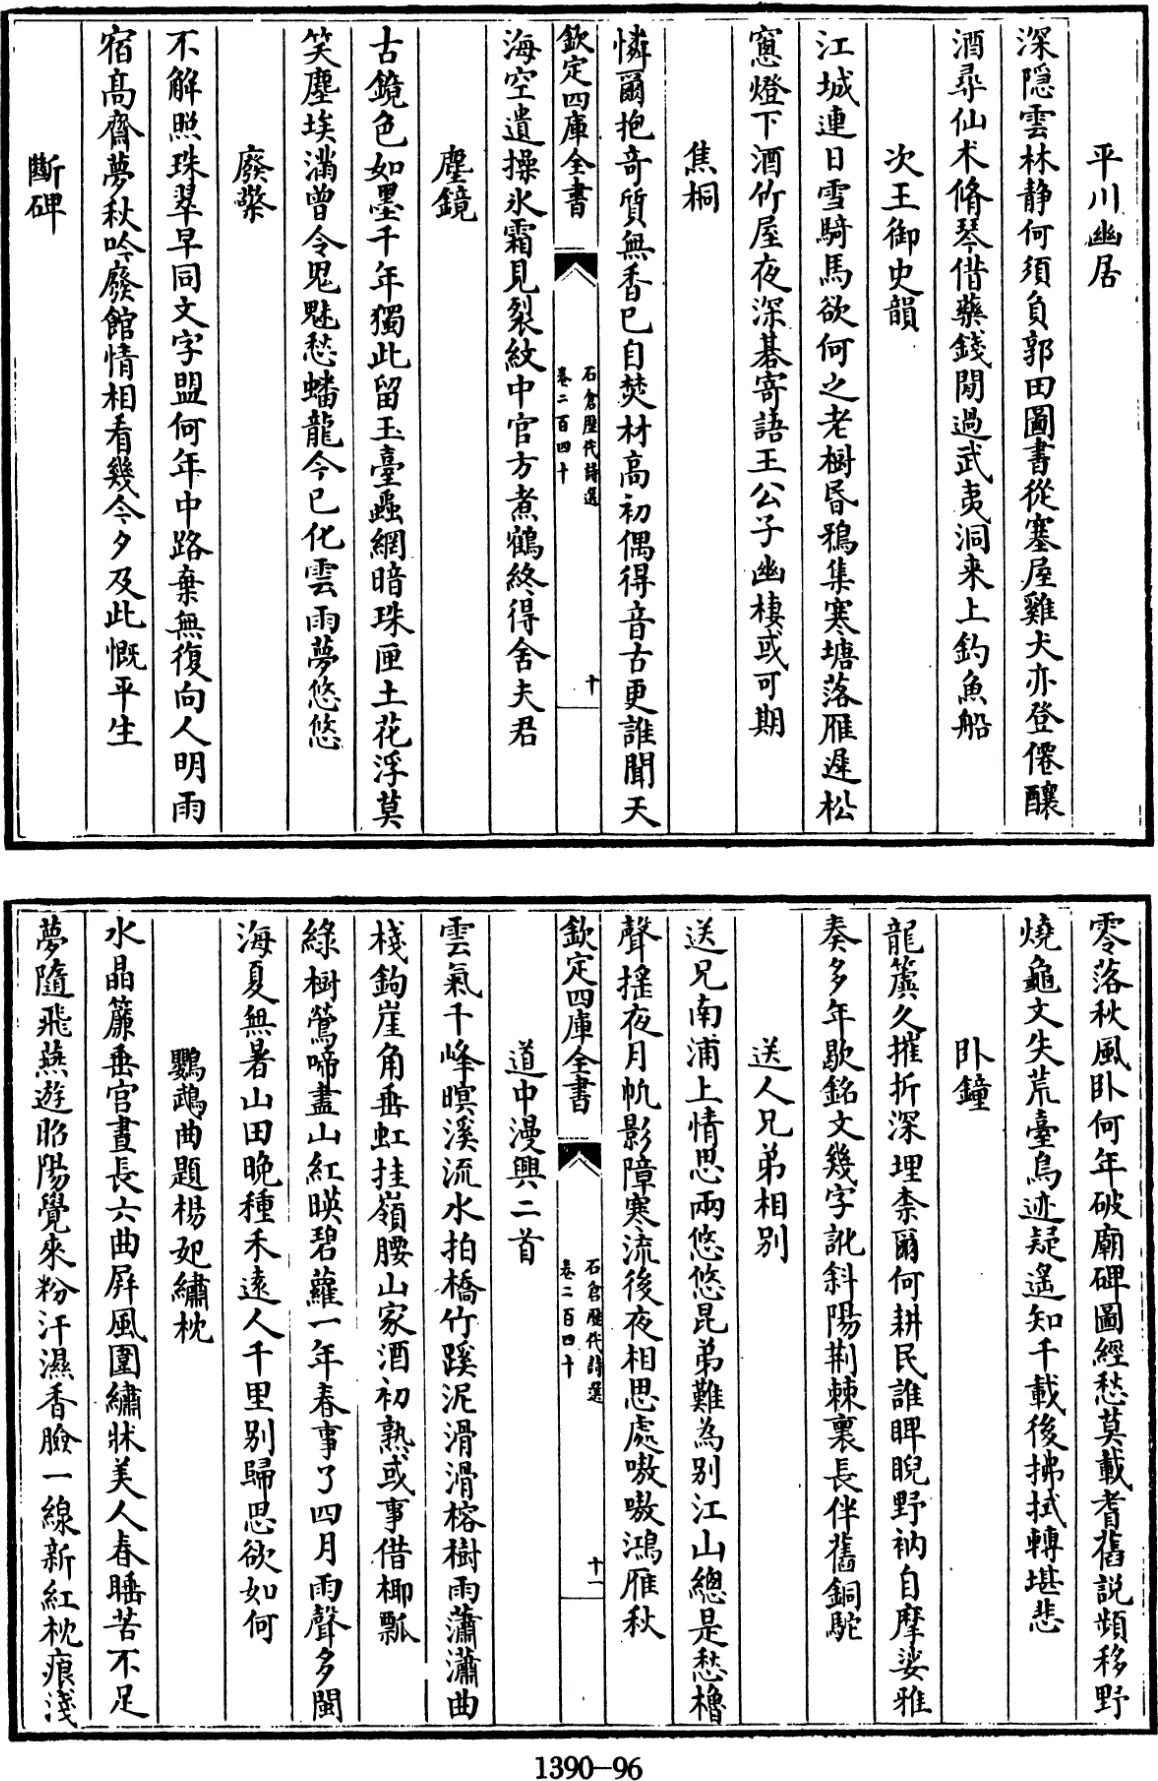 平川幽居
深隠雲林静何須負郭田圖書從塞屋雞犬亦登僊釀
酒尋仙术脩琴借藥錢閒過武夷洞来上釣魚船
次王御史韻
江城連日雪騎馬欲何之老樹昏鴉集寒塘落雁遲松
窓燈下酒竹屋夜深碁寄語王公子幽棲或可期
焦桐
憐爾抱奇質無香已自焚材高初偶得音古更誰聞天
欽定四庫全書
石倉歷代詩選
卷二百四十
十
海空遺操氷霜見裂紋中官方煮鶴終得舍夫君
塵鏡
古鏡色如墨千年獨此留玉臺蟲網暗珠匣土花浮莫
笑塵埃滿曾令鬼魅愁蟠龍今已化雲雨夢悠悠
廢檠
不解照珠翠早同文字盟何年中路棄無復向人明雨
宿髙齋夢秋吟廢館情相看幾今夕及此慨平生
斷碑
零落秋風卧何年破廟碑圖經愁莫載耆舊説頻移野
燒龜文失荒臺鳥迹疑遙知千載後拂拭轉堪悲
卧鐘
龍簴久摧折深埋柰爾何耕民誰睥睨野衲自摩娑雅
奏多年歇銘文幾字訛斜陽荆棘裏長伴舊銅駝
送人兄弟相别
送兄南浦上情思兩悠悠昆弟難為别江山總是愁櫓
聲揺夜月帆影障寒流後夜相思處嗷嗷鴻雁秋
欽定四庫全書
石倉歷代詩選
卷二百四十
十一
道中漫興二首
雲氣千峰暝溪流水拍橋竹蹊泥滑滑榕樹雨瀟瀟曲
棧鉤崖角垂虹挂嶺腰山家酒初熟或事借椰瓢
綠樹鶯啼盡山紅暎碧蘿一年春事了四月雨聲多閩
海夏無暑山田晚種禾逺人千里别歸思欲如何
鸚鵡曲題楊妃繡枕
水晶簾垂官晝長六曲屛風圍繡牀美人春睡苦不足
夢隨飛燕遊昭陽覺來粉汗濕香臉一線新紅枕痕淺
1390—96